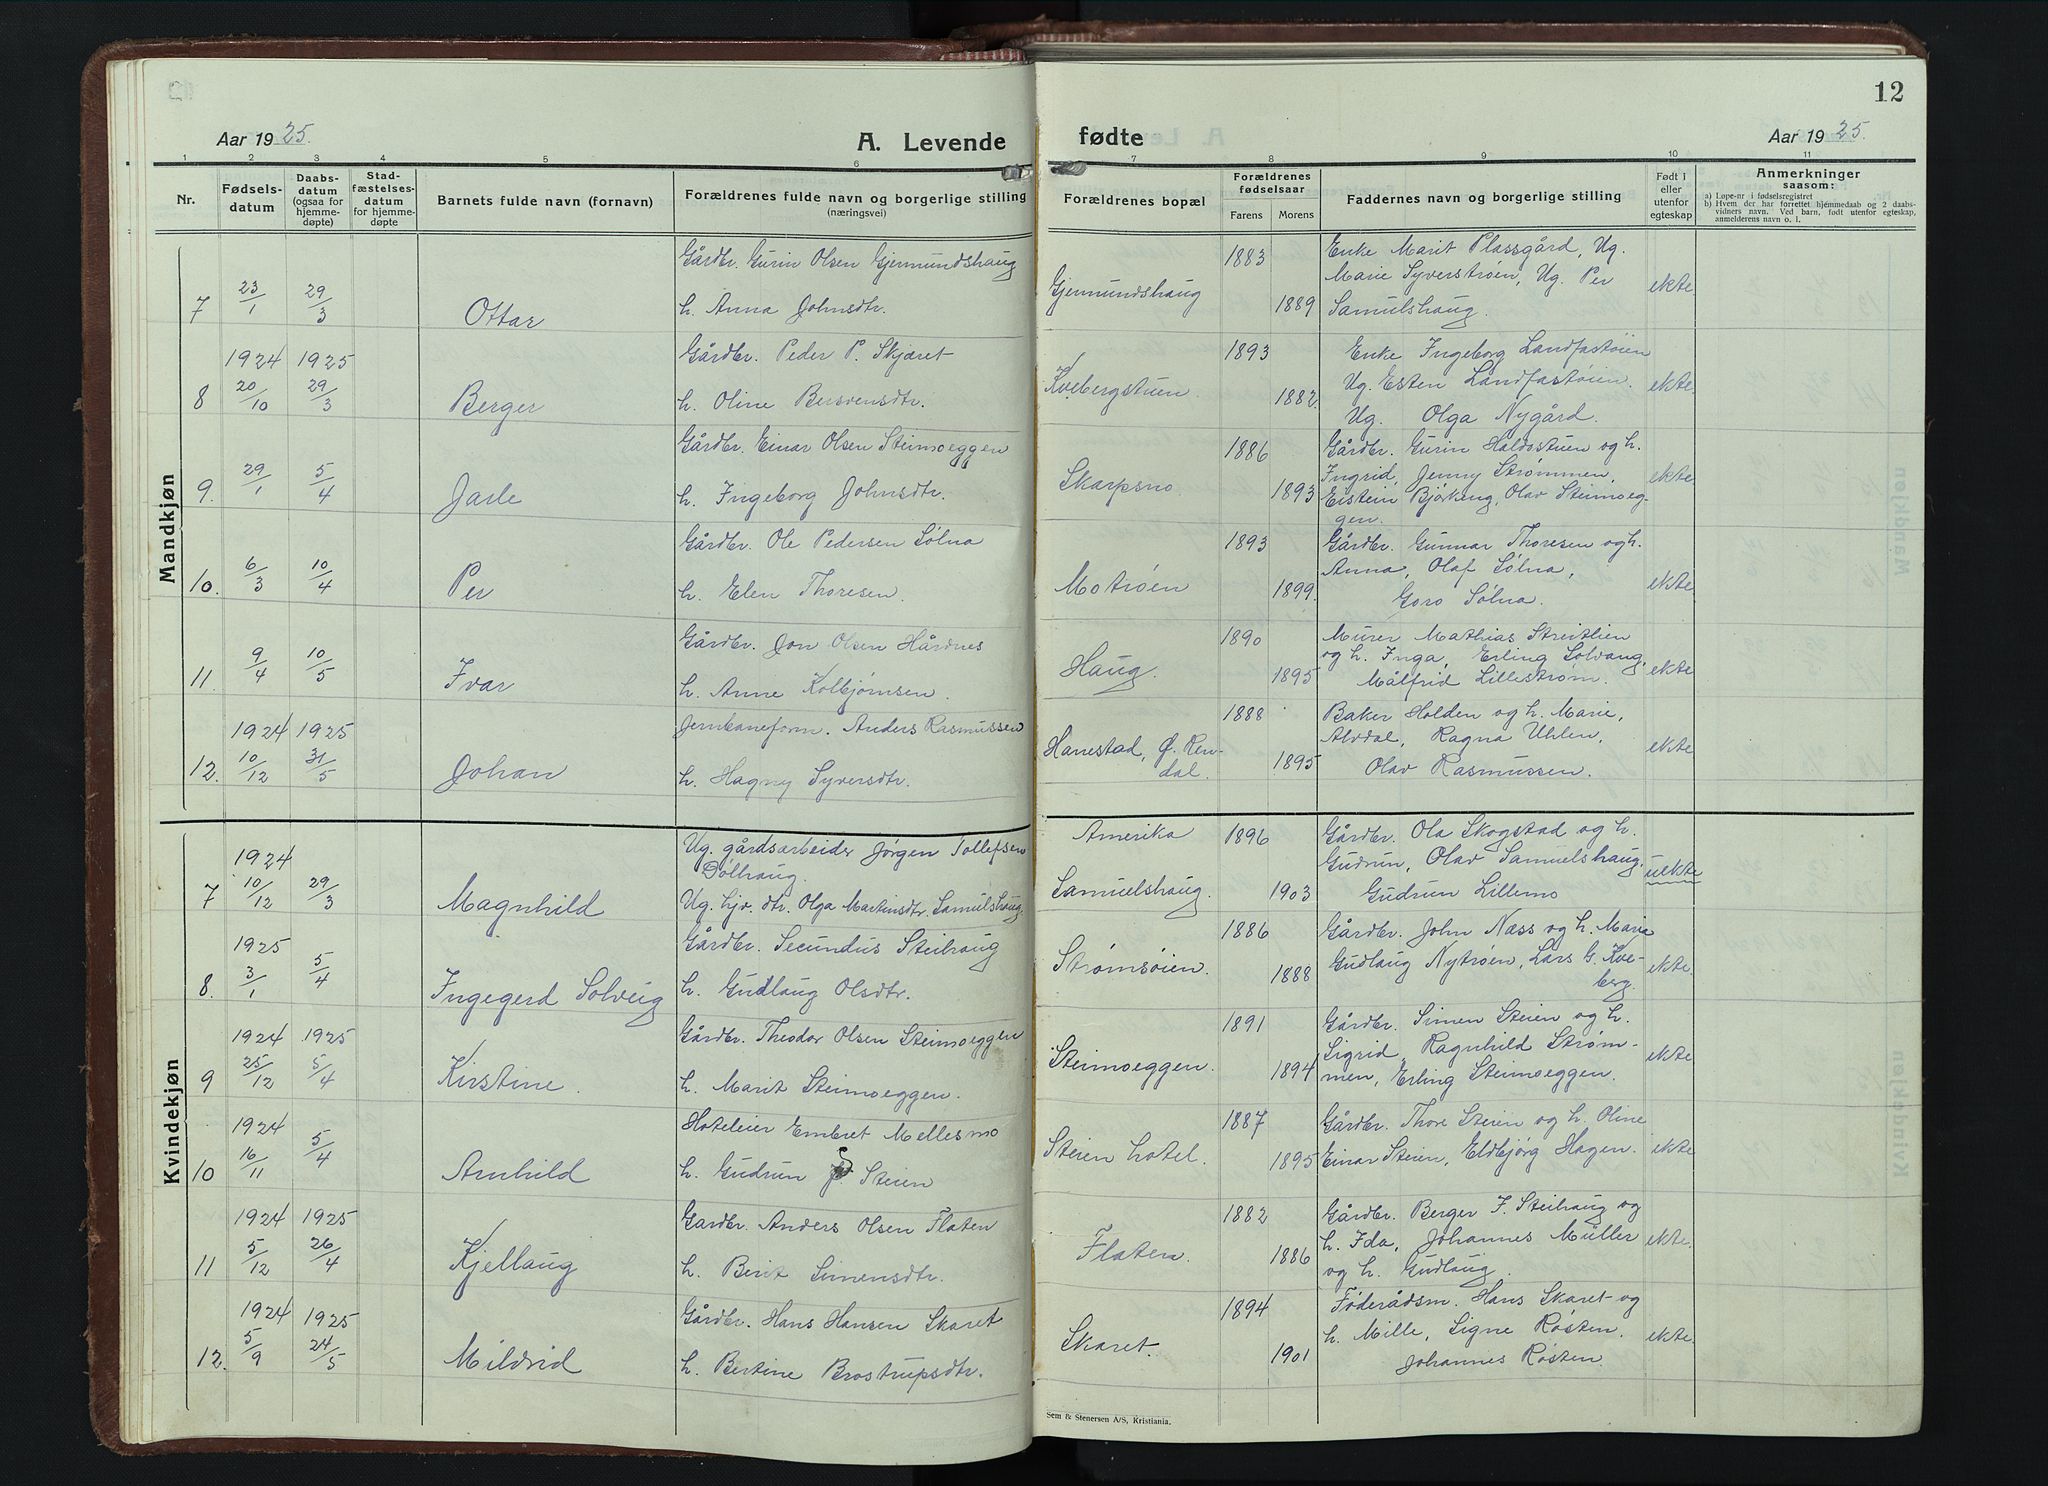 12
Aar 1925.
A. Levende
fødte
Aar 1925.
1 2 3 4 5 6 7 8 9 10 11
Nr.
Fødsels-
datum
Daabs-
datum
(ogsaa for
hjemme-
døpte)
Stad-
fæstelses-
datum
for hjemme-
døpte
Barnets fulde navn (fornavn)
Forældrenes fulde navn og borgerlige stilling
(næringsvei)
Forældrenes bopæl
Forældrenes
fødselsaar
Farens
Morens
Faddernes navn og borgerlige stilling
Født i
eller
utenfor
egteskap
Anmerkninger
saasom:
a) Løpe-nr i fødselsregistret
b) Hvem der har forrettet hjemmedaab og 2 daabs-
vidners navn. Ved barn, født utenfor egteskap,
anmelderens navn o. l.
Mandkjøn
7 23/1 29/3 Ottar
Gårdbr. Gurin Olsen Gjermundshaug
h. Anna Johnsdtr.
Gjermundshaug
1883
1889
Enke Marit Plassgård, Ug.
Marie Syverstrøen, Ug. Per
Samulshaug.
ekte
1924 1925
8 20/10 29/3 Berger
Gårdbr. Peder P. Skjæret
h. Oline Bersvensdtr.
Kvebergstuen
1893
1882.
Enke Ingeborg Landfastøien
Ug. Esten Landfastøien.
Ug. Olga Nygård.
ekte
9. 29/1 5/4 Jarle
Gårdbr. Einar Olsen Steimoeggen
h. Ingeborg Johnsdtr.
Skarpsno
1886
1893
Gårdbr. Gurin Haldostuen og h.
Ingrid, Jenny Strømmen,
Eistein Bjørkeng, Olav Steimoeg-
gen.
ekte
10. 6/3 10/4 Per
Gårdbr. Ole Pedersen Sølna
h. Elen Thoresen.
Motrøen
1893
1899.
Gårdbr. Gunnar Thoresen og h.
Anna, Olaf Sølna,
Goro Sølna.
ekte
11. 9/4 10/5 Ivar
Gårdbr. Jon Olsen Hårdnes
h. Anne Kolbjørnsen.
Haug.
1890
1895
Murer Mathias Streitlien
og h. Inga, Erling Solvang,
Målfrid Lillestrøm.
ekte
1924 1925
12. 10/12 31/5 Johan
Jernbaneform. Anders Rasmussen
h. Hagny Syversdtr.
Hanestad, Ø. Ren-
dal.
1888
1895
Baker Holden og h. Marie,
Alvdal, Ragna Uhlen,
Olav Rasmussen.
ekte
Kvindekjøn
1924
7 10/12 29/3 Magnhild
Ug. gårdsarbeider Jørgen Tollefsen
Dølhaug.
Ug. hjv. dtr. Olga Martinsdtr. Samulshaug.
Amerika
Samuelshaug.
1896
1903
Gårdbr. Ola Skogstad og h.
Gudrun, Olav Samuelshaug,
Gudrun Lillemo
uekte
1925
8. 3/1 5/4 Ingegerd Solveig
Gårdbr. Secundus Steihaug
h. Gudlaug Olsdtr.
Strømsøien.
1886
1888
Gårdbr. John Næss og h. Maria
Gudlaug Nytrøen, Lars G. Kve-
berg.
ekte.
1924 1925
9 25/12 5/4 Kirstine.
Gårdbr. Theodor Olsen Steimoeggen
h. Marit Steimoeggen.
Steimoeggen.
1891
1894
Gårdbr. Simen Steien og h.
Sigrid, Ragnhild Strøm-
men, Erling Steimoeggen.
ekte
1924
10 16/11 5/4 Arnhild
Hoteleier Embret Mellesmo
h. Gudrun S. Steien
Steien hotel.
1887
1895
Gårdbr. Thore Steien og h. Oline
Einar Steien, Eldbjørg Hagen.
ekte
1924 1925
11 5/12 26/4 Kjellaug
Gardbr. Anders Olsen Flaten
h. Berit Simensdtr.
Flaten.
1882
1886
Gårdbr. Berger F. Steihaug og
h. Ida, Johannes Müller
og h. Gudlaug.
ekte.
1924 1925
12. 5/9 24/5 Mildrid
Gårdbr. Hans Hansen Skaret
h. Bertine Brostrupsdtr.
Skaret.
1894
1901
Føderådsm. Hans Skaret og
h. Mille, Signe Røsten,
Johannes Røsten.
ekte
Sem & Stenersen A/S, Kristiania.